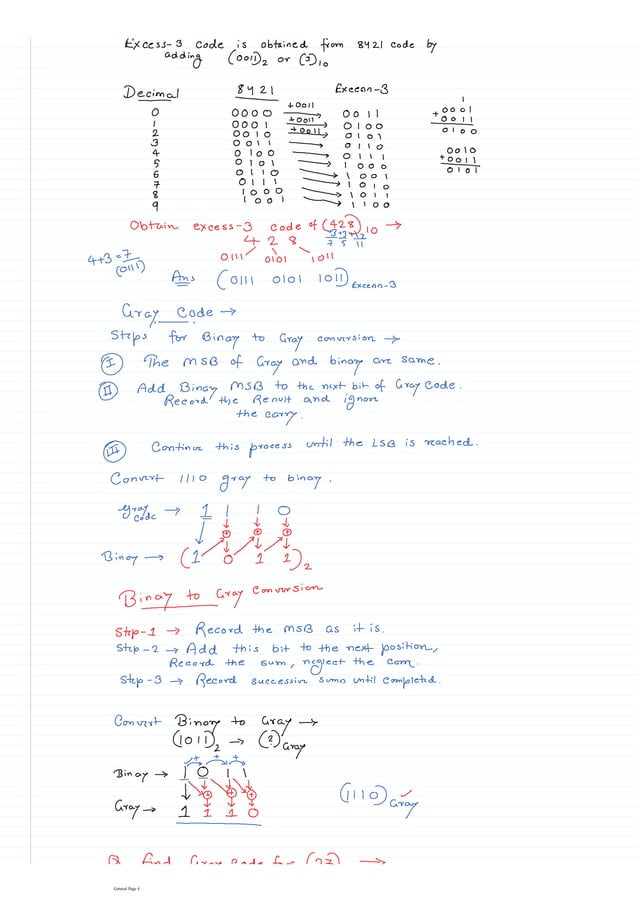 Excess-3 code is obtained from 8421 code by
adding (0011)2 or (3)10
Decimal 8421 Excess-3
0 0000 +0011 0011
1 0001 +0011 0100
2 0010 +0011 0101
3 0011 0110
4 0100 0111
5 0101 1000
6 0110 1001
7 0111 1010
8 1000 1011
9 1001 1100
1
0001
+0011
0100
0010
+0011
0101
Obtain excess-3 code of (428)10 →
+3 +3 +3
7 5 11
4 2 8
4+3=7
(0111)
0111 0101 1011
Ans (0111 0101 1011)Excess-3
Gray Code →
Steps for Binay to Gray conversion →
I The MSB of Gray and binary are same.
II Add Binay MSB to the next bit of Gray Code.
Record the Result and ignore
the carry.
III Continue this process until the LSB is reached.
Convert 1110 gray to binary.
Gray Code → 1 1 1 0
Binay → (1 0 1 1)2
Binay to Gray Conversion
Step-1 → Record the MSB as it is.
Step-2 → Add this bit to the next position,
Record the sum, neglect the
Step-3 → Record successive sums until completed.
Convert Binary to Gray →
(1011)2 → (?)Gray
+ + +
Binary → 1 0 1 1
Gray → 1 1 1 0
(1110)Gray ✓
Q Find Gray Code for (27) →
General Page 4